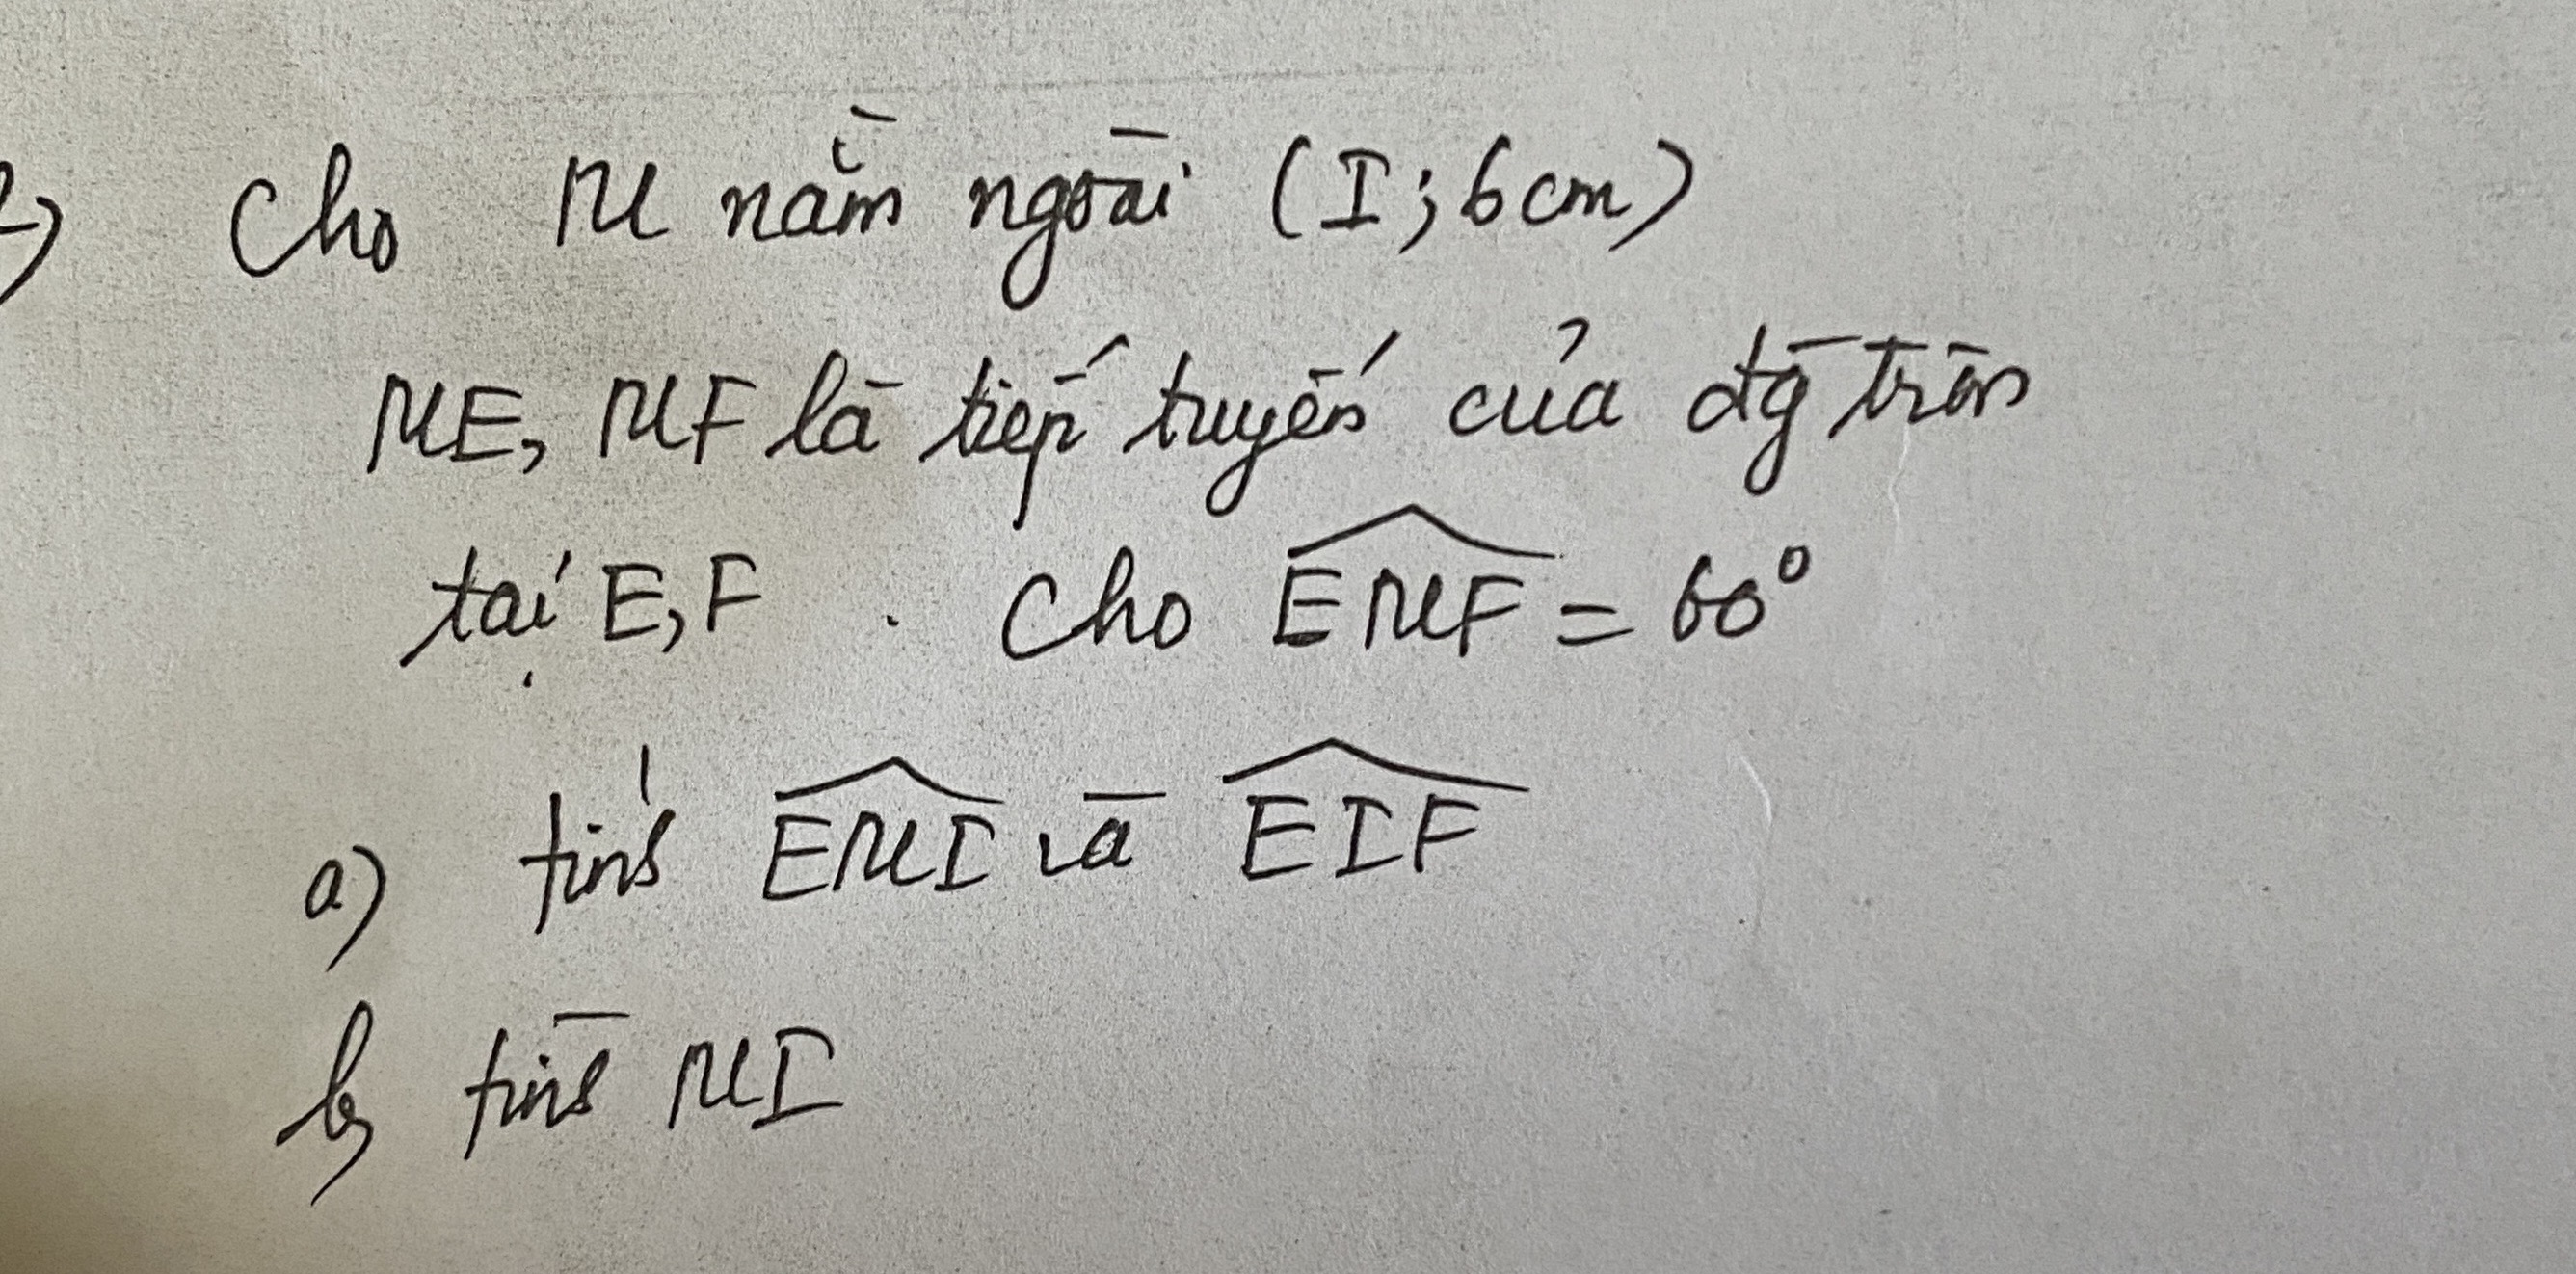 2) Cho M nằm ngoài (I; 6cm)
ME, MF là tiếp tuyến của đg tròn
tại E, F . Cho \widehat{EMF} = 60°
a) tính \widehat{EMI} và \widehat{EIF}
b) tính MI